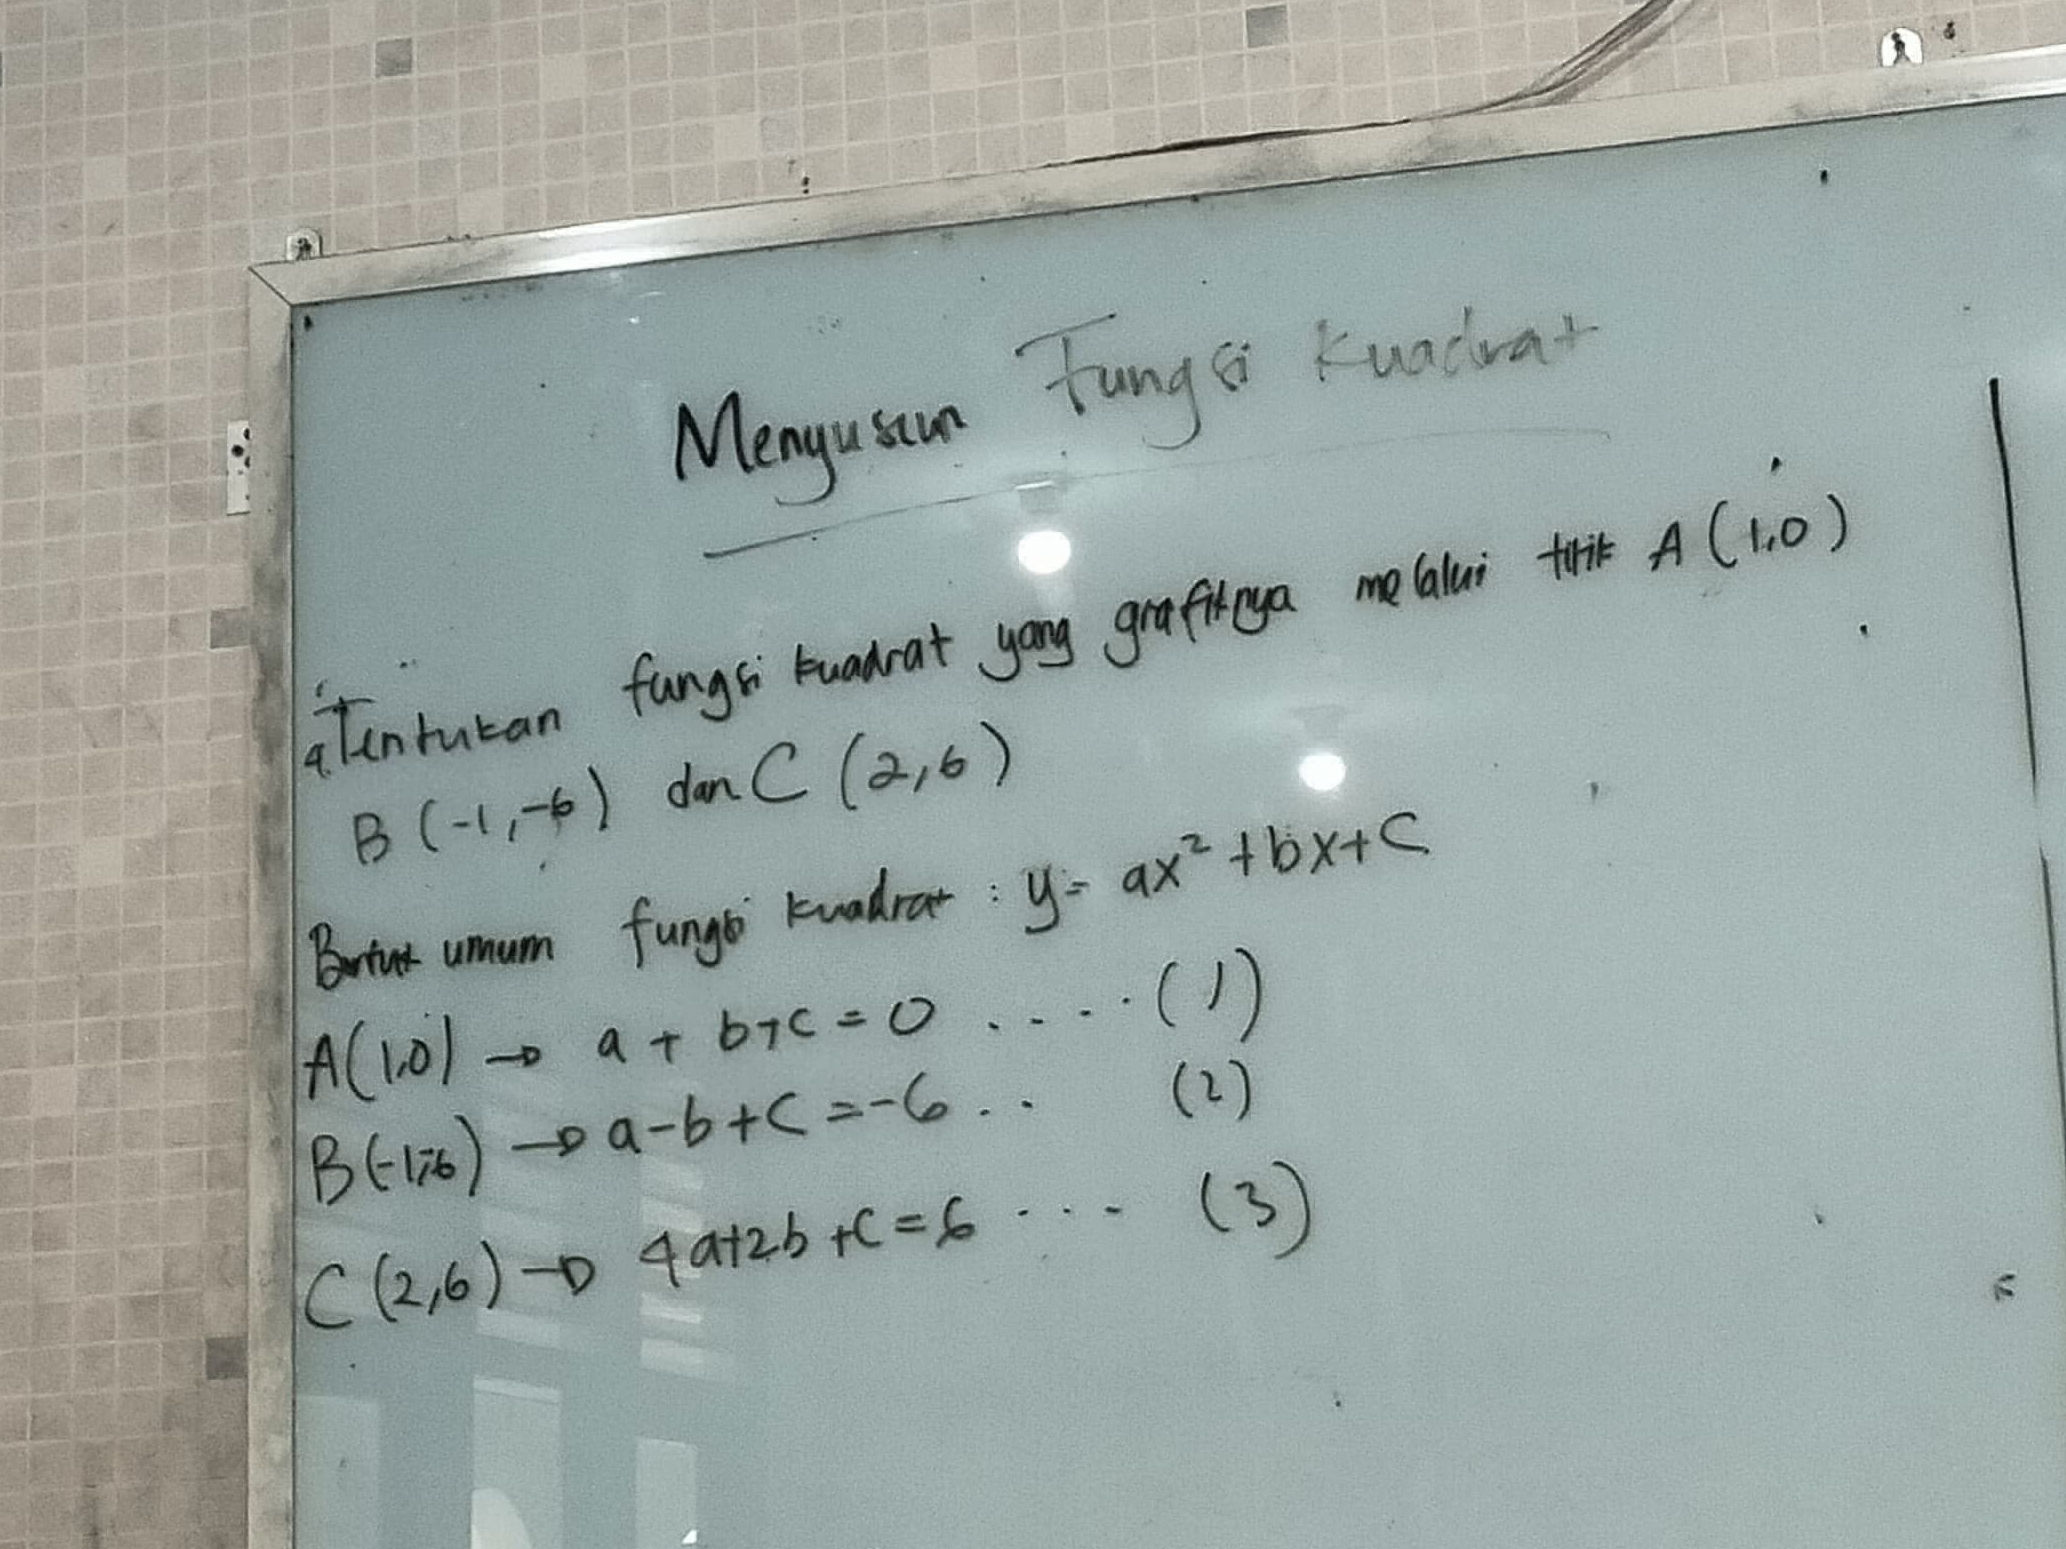 Menyusun Fungsi Kuadrat
a. Tentukan fungsi kuadrat yang grafiknya melalui titik A (1,0)
B (-1,-6) dan C (2,6)
Bentuk umum fungsi kuadrat : y = ax² + bx + c
A(1,0) → a + b + c = 0 ..... (1)
B(-1,-6) → a - b + c = -6 .. (2)
C (2,6) → 4a+2b+c = 6 .... (3)